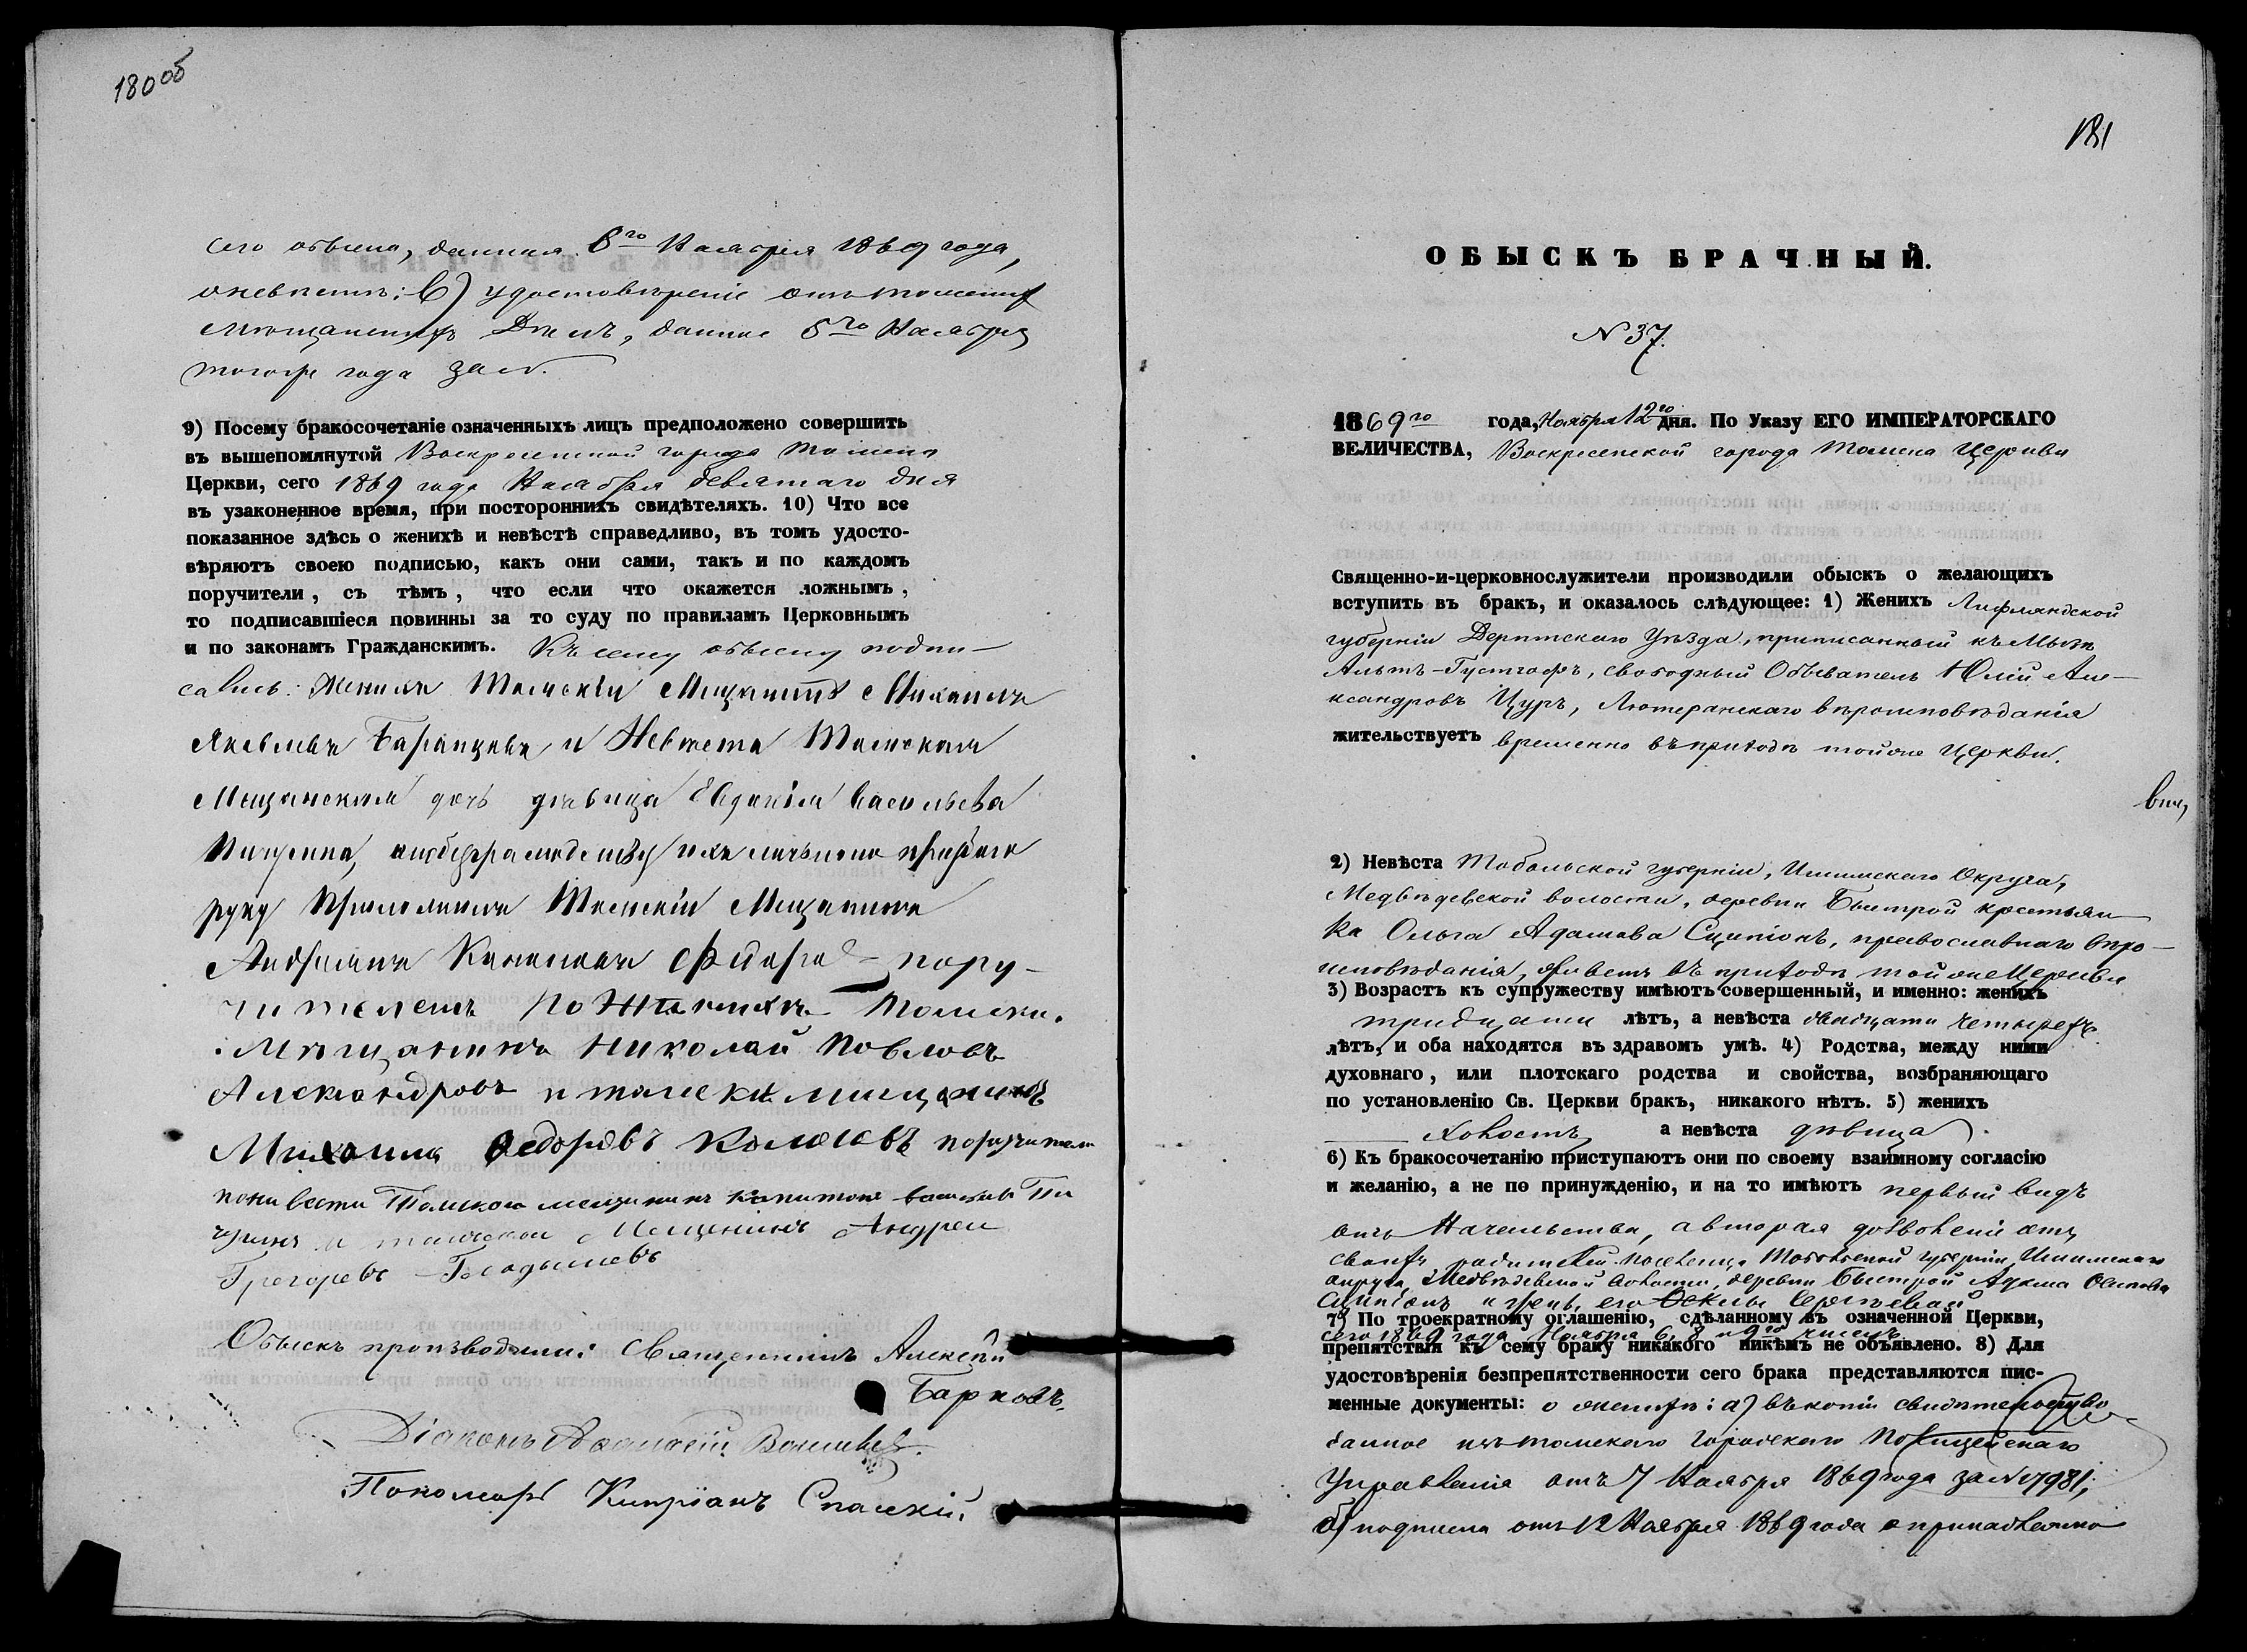 180об
сего обыска, данная 6го Ноября 1869 года,
о невесте: в) удостоверение отъ томских
мещанских Делъ, данное 5го Ноября
того же года за №.
9) Посему бракосочетаніе означенныхъ лицъ предположено совершить
въ вышепомянутой Воскресенской города Томска
Церкви, сего 1869 года Ноября девятаго дня
въ узаконенное время, при постороннихъ свидѣтеляхъ. 10) Что все
показанное здѣсь о женихѣ и невѣстѣ справедливо, въ томъ удосто-
вѣряютъ своею подписью, какъ они сами, такъ и по каждомъ
поручители, съ тѣмъ, что если что окажется ложнымъ,
то подписавшіеся повинны за то суду по правиламъ Церковнымъ
и по законамъ Гражданскимъ. Къ сему обыску подпи-
сались: Женихъ Томскій Мещанинъ Михаилъ
Яковлевъ и Невеста Томская
Мещанская дочь девица Евдокія Васильева
Пичугина,
руку приложилъ Томскій Мещанинъ
пору-
чителемъ по Женихе Томски.
Мѣщанинъ Николай Повловъ
Александровъ и томски мищанинъ
Михаила Федоровъ поручители
по нивести Томской мещининъ Капитонъ Пи
чугинъ и томской Мещенинъ Андреи
Григоревъ
Обыскъ производили: Священникъ Алексѣй
Барковъ.
Діаконъ
Пономарь Кипріанъ Спасскій.
181
ОБЫСКЪ БРАЧНЫЙ.
N 37.
1869го года, Ноября 12го дня. По Указу ЕГО ИМПЕРАТОРСКАГО
ВЕЛИЧЕСТВА, Воскресенской города Томска Церкви
Священно-и-церковнослужители производили обыскъ о желающихъ
вступить въ бракъ, и оказалось слѣдующее: 1) Женихъ Лифляндской
губерніи Дерптскаго Уѣзда, приписанный къ Мызѣ
Альтъ-Густгофъ, свободный Обыватель Юлій Але-
ксандровъ Цуръ, Лютеранскаго вѣроисповѣданія
жительствуетъ временно въ приходѣ той же Церкви.
2) Невѣста Тобольской губерніи, Ишимскаго Округа,
Медвѣдевской волости, деревни Быстрой крестьян
ка Ольга Адамова Сципіонъ, православнаго вѣро-
исповѣданія, живетъ въ приходѣ той же Церкви
3) Возрастъ къ супружеству имѣютъ совершенный, и именно: женихъ
тридцати лѣтъ, а невѣста двадцати четырехъ
лѣтъ, и оба находятся въ здравомъ умѣ. 4) Родства, между ними
духовнаго, или плотскаго родства и свойства, возбраняющаго
по установленію Св. Церкви бракъ, никакого нѣтъ. 5) женихъ
холостъ а невѣста дѣвица.
6) Къ бракосочетанію приступаютъ они по своему взаимному согласію
и желанію, а не по принужденію, и на то имѣютъ первый видъ
отъ Начальства, а вторая дозволеніе отъ
своихъ родителей поселенца Тобольской губерніи Ишимскаго
округа, Медвѣдевской волости, деревни Быстрой Адама Осипова
Сципіонъ и жены его Феклы Сергѣевой
7) По троекратному оглашенію, сдѣланному въ означенной Церкви,
сего 1869 года Ноября 6, 8 и 9го чиселъ
препятствія къ сему браку никакого никѣмъ не объявлено. 8) Для
удостовѣренія безпрепятственности сего брака представляются пис-
менные документы: о женихѣ: а) въ копіи свидѣтельство
данное изъ томскаго Городскаго Полицейскаго
Управленія отъ 7 Ноября 1869 года за N 17981;
б) подписка отъ 12 Ноября 1869 года о принадлежно